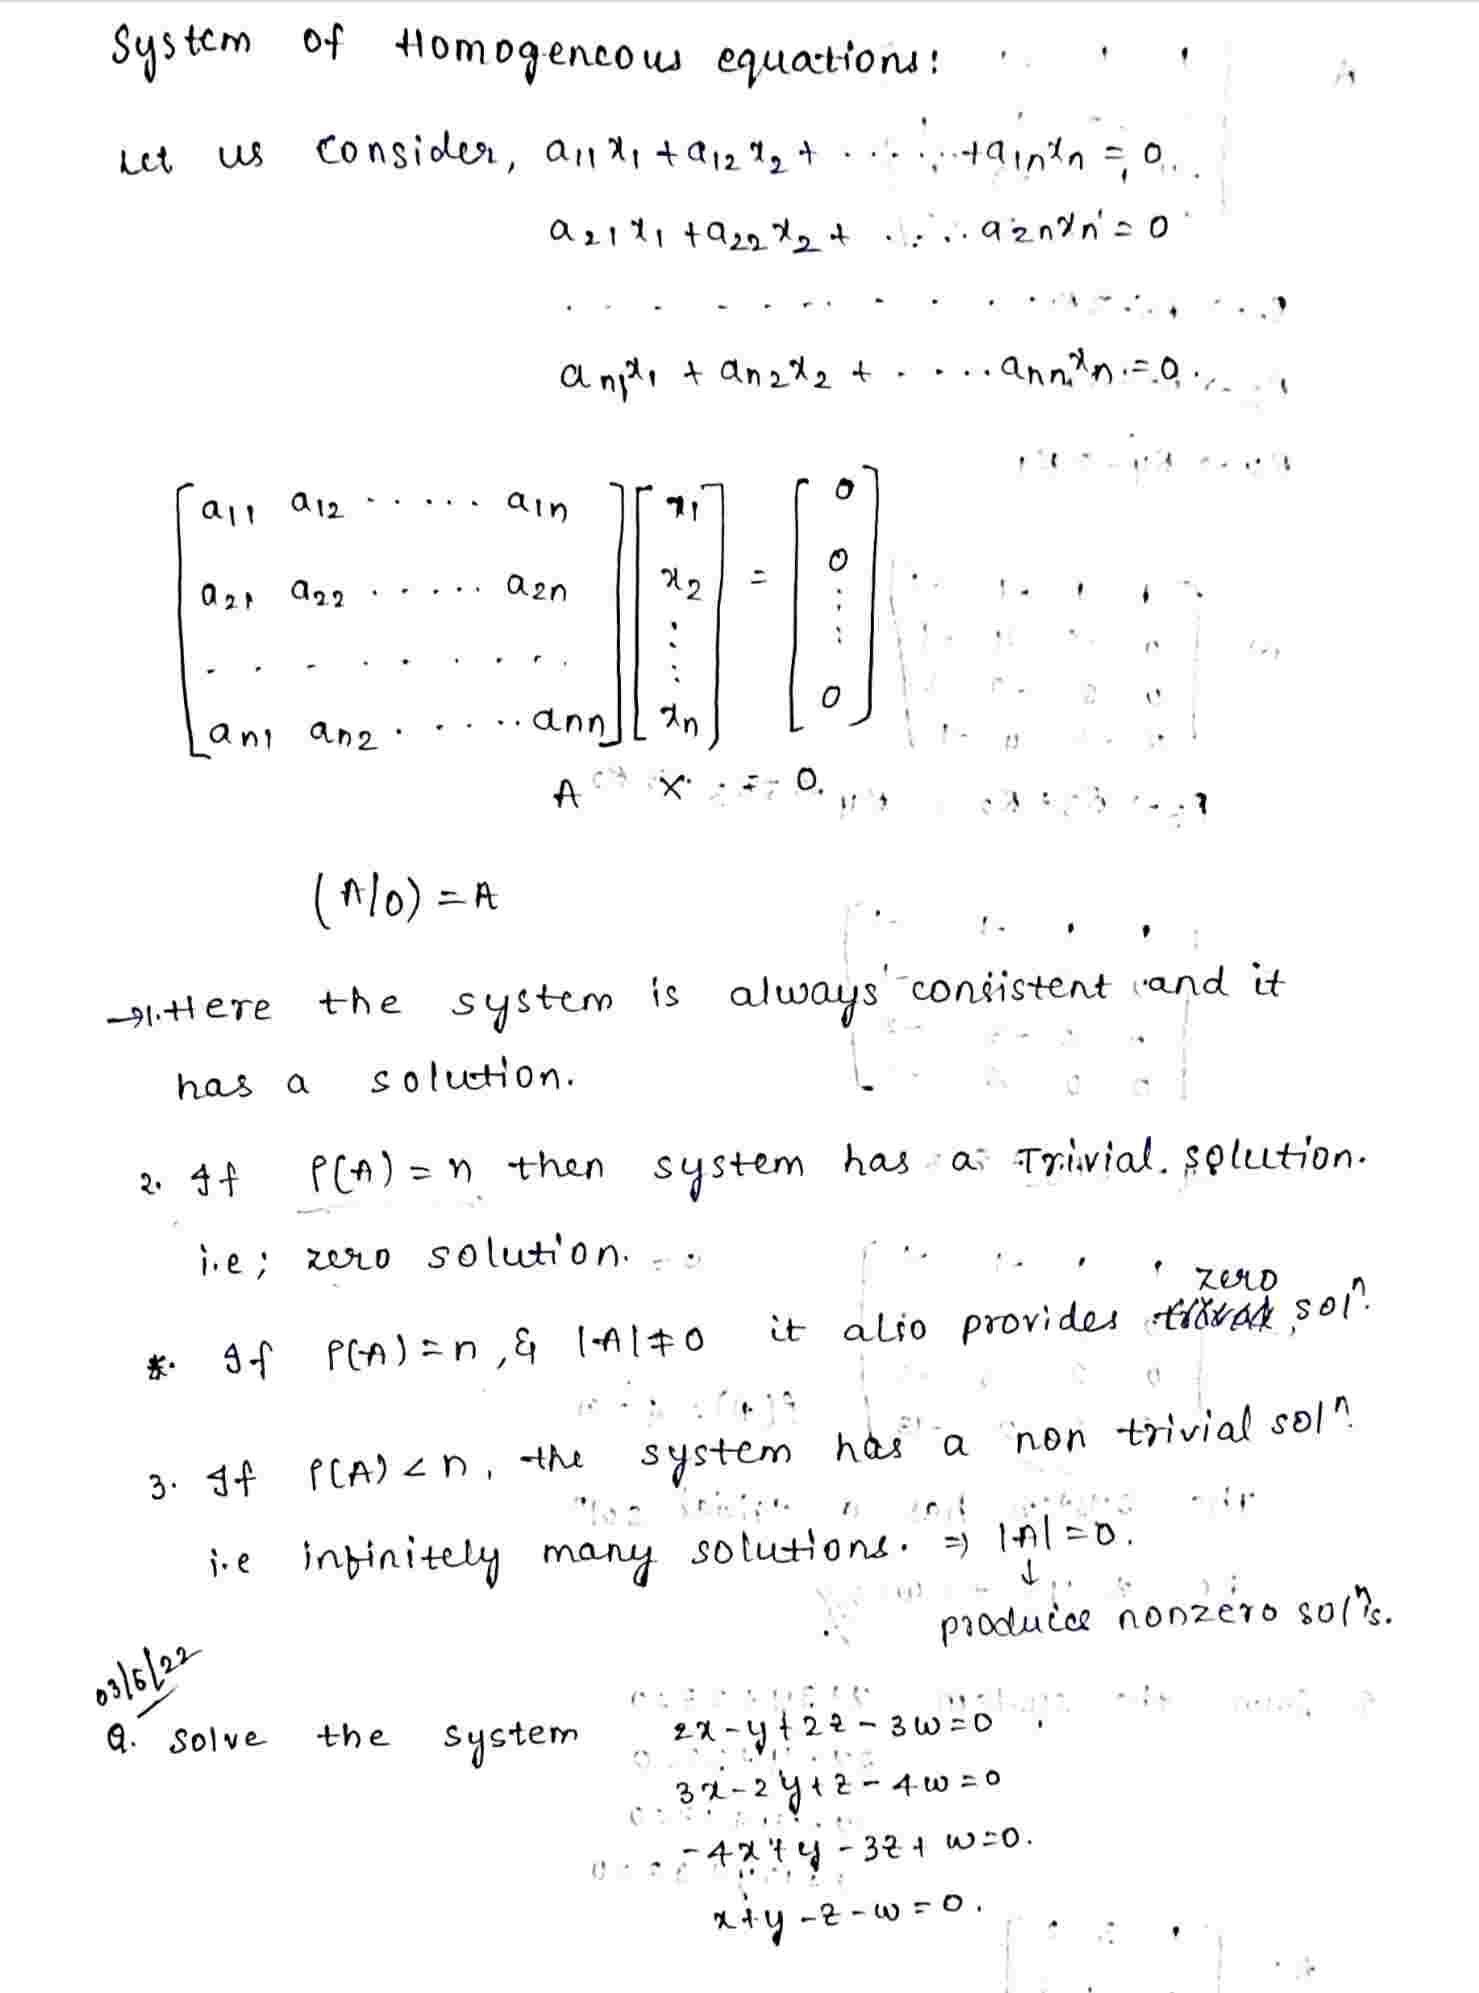 System of Homogeneous equations:
Let us consider, a11x1 + a12x2 + ...... + a1nxn = 0.
a21x1 + a22x2 + ..... a2nxn = 0
. . . . . . . . . . . . . . .
an1x1 + an2x2 + .....annxn = 0.
[a11 a12 ..... a1n] [x1] = [0]
[a21 a22 ..... a2n] [x2] [0]
. . . . . . . . . . ⋮ ⋮
[an1 an2 ..... ann] [xn] [0]
A X = 0.
(A/0) = A
→1. Here the system is always consistent and it
has a solution.
2. If ρ(A) = n then system has a Trivial solution.
i.e; zero solution.
*. If ρ(A) = n, & |A| ≠ 0 it also provides zero solⁿ.
3. If ρ(A) < n, the system has a non trivial solⁿ.
i.e infinitely many solutions. ⇒ |A| = 0.
↓
produces nonzero solⁿs.
03/6/22
Q. Solve the system 2x - y + 2z - 3w = 0
3x - 2y + z - 4w = 0
-4x + y - 3z + w = 0.
x + y - z - w = 0.